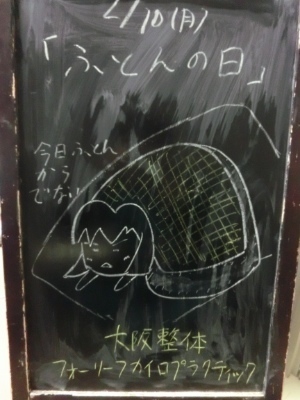 2/10(月)
「ふとんの日」
今日ふとん
から
でない
大阪整体
フォーリーフカイロプラクティック